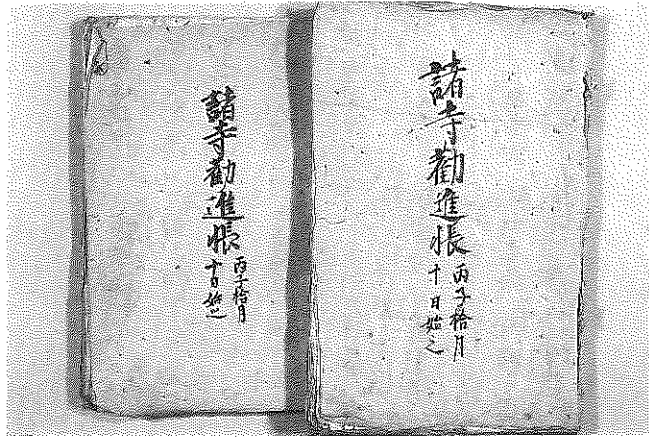 諸寺勸進帳
丙子拾月
十日始之
諸寺勸進帳
丙子拾月
十日始之